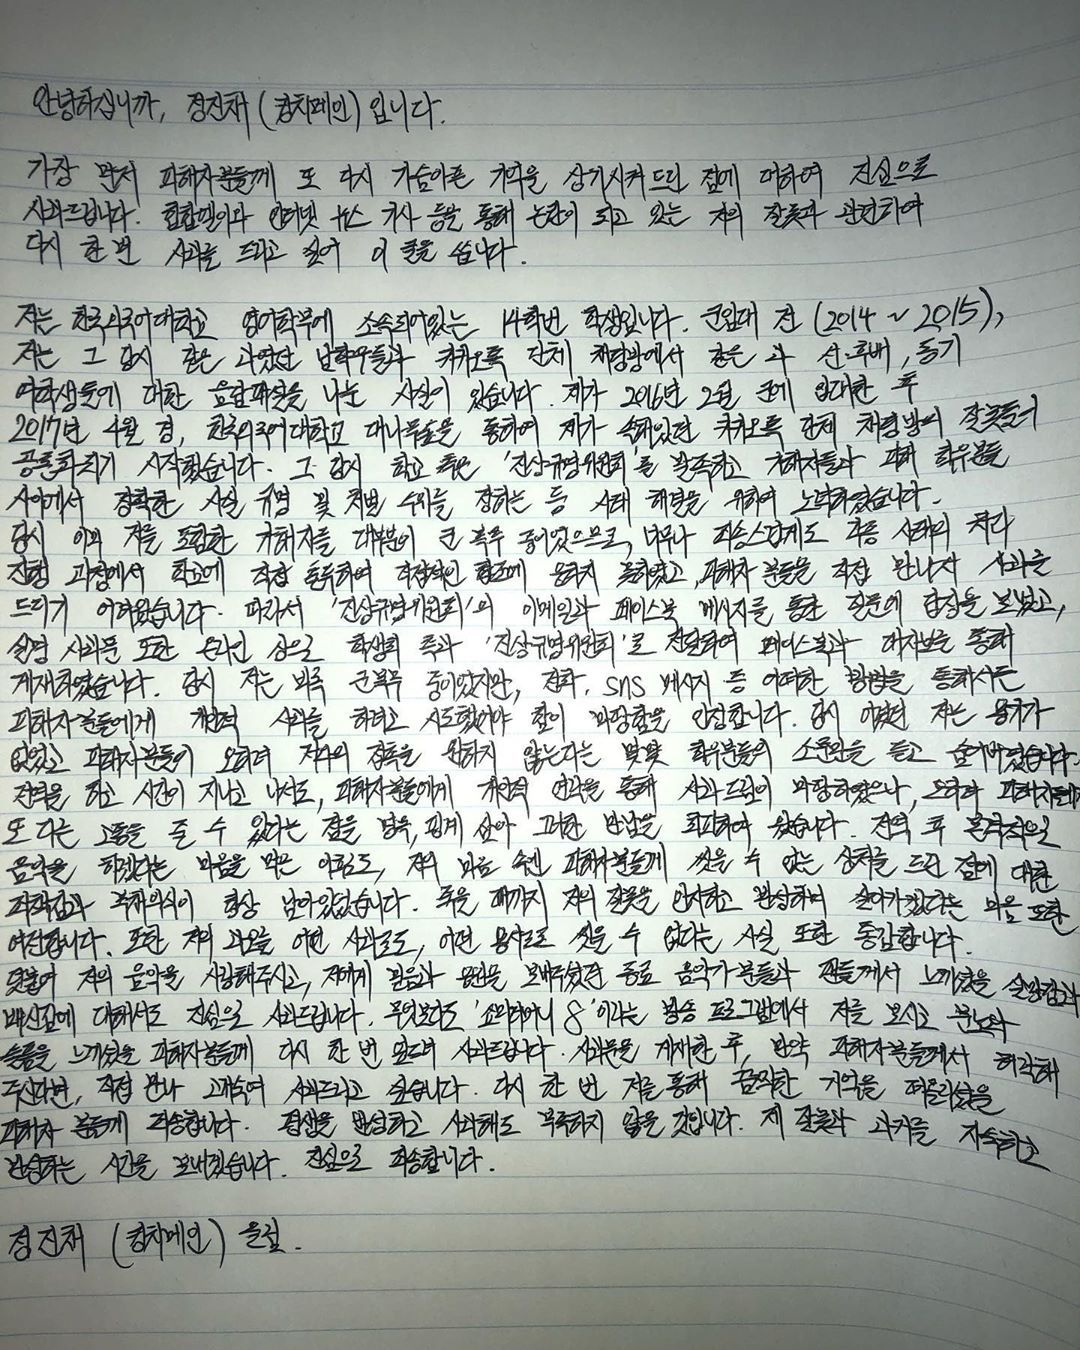 안녕하십니까, 정진채 (킴치메인) 입니다.
가장 먼저 피해자분들께 또 다시 가슴아픈 기억을 상기시켜드린 점에 대하여 진심으로
사과드립니다. 힙합엘이와 인터넷 뉴스 기사 등을 통해 논란이 되고 있는 저의 잘못과 관련하여
다시 한 번 사과를 드리고 싶어 이 글을 씁니다.
저는 한국외국어대학교 영어학부에 소속되어있는 14학번 학생입니다. 군입대 전 (2014 ~ 2015),
저는 그 당시 같은 과였던 남학우들과 카카오톡 단체 채팅방에서 같은 과 선·후배, 동기
여학생들에 대한 음담패설을 나눈 사실이 있습니다. 제가 2016년 2월 군에 입대한 후
2017년 4월 경, 한국외국어대학교 대나무숲을 통하여 제가 속해있던 카카오톡 단체 채팅방의 잘못들이
공론화되기 시작했습니다. 그 당시 학교 측은 '진상규명위원회'를 발족하고 가해자들과 피해 학우분들
사이에서 정확한 사실 규명 및 처벌 수위를 정하는 등 사태 해결을 위하여 노력하였습니다.
당시 이미 저를 포함한 가해자들 대부분이 군 복무 중이었으므로, 너무나 죄송스럽게도 각종 사태의 처리
진행 과정에서 학교에 직접 출두하여 직접적인 협조에 응하지 못하였고, 피해자 분들을 직접 만나 사과를
드리기 어려웠습니다. 따라서 '진상규명위원회'의 이메일과 페이스북 메시지를 통한 질문에 답장을 보냈고,
실명 사과문 또한 온라인 상으로 학생회 측과 '진상규명위원회'로 전달하여 페이스북과 대자보를 통해
게재하였습니다. 당시 저는 비록 군복무 중이었지만, 전화, sns 메시지 등 어떠한 방법을 통해서든
피해자분들에게 개인적 사과를 하려고 시도했어야 함이 마땅함을 인정합니다. 당시 어렸던 저는 용기가
없었고 피해자분들이 오히려 저와의 접촉을 원하지 않는다는 몇몇 학우분들의 소문만을 듣고 숨어버렸습니다.
전역을 하고 시간이 지나고 나서도, 피해자분들에게 개인적 연락을 통해 사과드림이 마땅하였으나, 오히려 피해자들에게
또 다른 고통을 줄 수 있다는 점을 방북, 핑계 삼아 그러한 만남을 회피하여 왔습니다. 전역 후 본격적으로
음악을 하겠다는 마음을 먹은 이후도, 저의 마음 속엔 피해자분들께 씻을 수 없는 상처를 드린 점에 대한
죄책감과 부채의식이 항상 남아있었습니다. 죽을 때까지 저의 잘못을 인지하고 반성하며 살아가겠다는 마음 또한
여전합니다. 또한 저의 과오를 어떤 사과로도, 어떤 용서로도 씻을 수 없다는 사실 또한 통감합니다.
덧붙여 저의 음악을 사랑해주시고, 저에게 믿음과 응원을 보내주셨던 동료 음악가분들과 팬들께서 느끼셨을 실망감과
배신감에 대해서도 진심으로 사과드립니다. 무엇보다도 '쇼미더머니 8'이라는 방송 프로그램에서 저를 보시고 분노와
슬픔을 느끼셨을 피해자분들께 다시 한 번 엎드려 사과드립니다. 사과문을 게재한 후, 만약 피해자분들께서 허락해
주신다면, 직접 만나 고개숙여 사과드리고 싶습니다. 다시 한 번 저를 통해 끔찍한 기억을 떠올리셨을
피해자 분들께 죄송합니다. 평생을 반성하고 사과해도 부족하지 않을 것입니다. 제 잘못과 과거를 자숙하고
반성하는 시간을 보내겠습니다. 진심으로 죄송합니다.
정진채 (킴치메인) 올림.